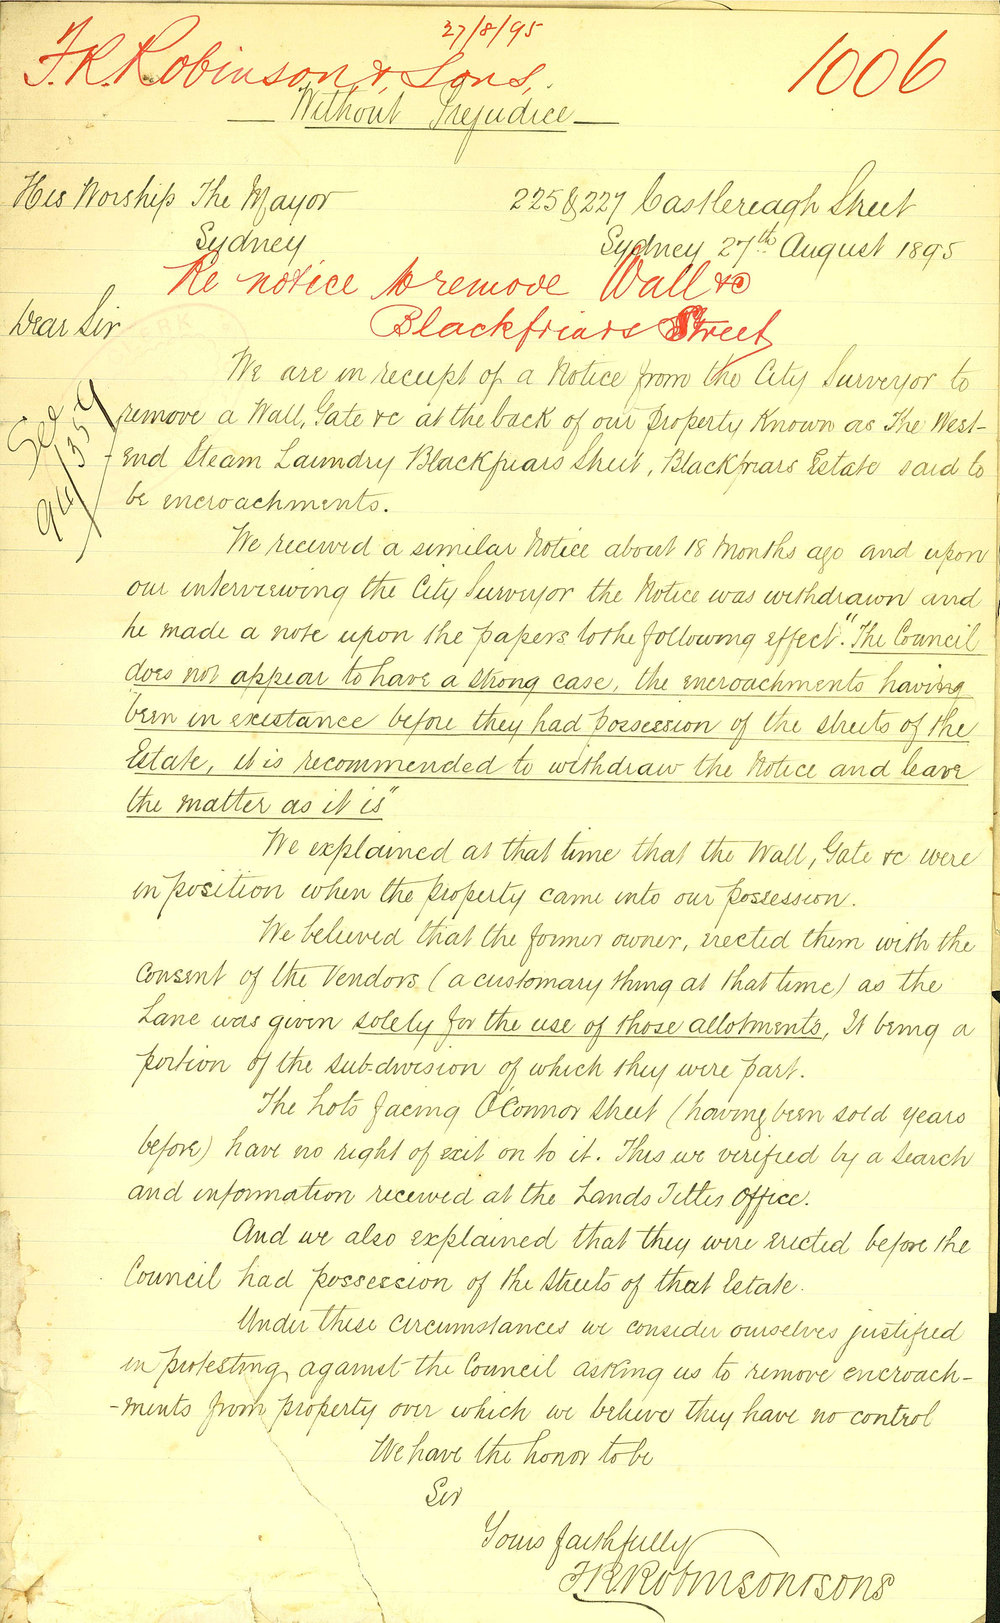 27/8/95
F. R. Robinson & Sons,
1006
Without Prejudice
His Worship The Mayor
Sydney
225 & 227 Castlereagh Street
Sydney 27th August 1895
Re notice to remove Wall &c
Blackfriars Street
Dear Sir
See
94/1359
We are in receipt of a Notice from the City Surveyor to
remove a Wall, Gate &c at the back of our property Known as The West-
-End Steam Laundry Blackfriars Street, Blackfriars Estate said to
be encroachments.
We received a similar Notice about 18 Months ago and upon
our interviewing the City Surveyor the Notice was withdrawn and
he made a note upon the papers to the following effect. "The Council
does not appear to have a strong case, the encroachments having
been in existance before they had possession of the streets of the
Estate, it is recommended to withdraw the Notice and leave
the matter as it is"
We explained at that time that the Wall, Gate &c were
in position when the property came into our possession.
We believed that the former owner, erected them with the
consent of the Vendors (a customary thing at that time) as the
Lane was given solely for the use of those allotments, It being a
portion of the sub-division of which they were part.
The Lots facing O'Connor Street (having been sold years
before) have no right of exit on to it. This we verified by a Search
and information received at the Lands Titles Office.
And we also explained that they were erected before the
Council had possession of the Streets of that Estate.
Under these circumstances we consider ourselves justified
in protesting against the Council asking us to remove encroach-
-ments from property over which we believe they have no control
We have the honor to be
Sir
Yours faithfully
F R Robinson & Sons